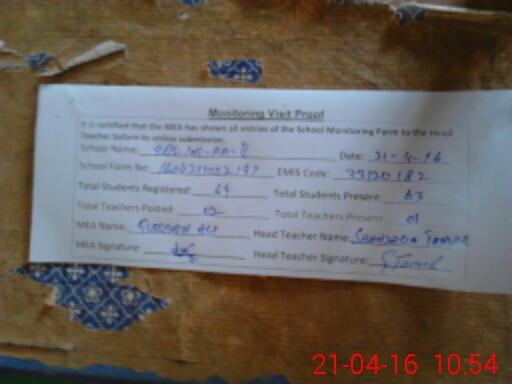 Monitoring Visit Proof
It is certified that the MEA has shown all entries of the School Monitoring Form to the Head
Teacher before its online submission.
School Name: Date: 21-4-16
School Form No: EMIS Code: 33120182
Total Students Registered: 69 Total Students Present: 63
Total Teachers Posted: 02 Total Teachers Present: 01
MEA Name: Head Teacher Name:
MEA Signature: Head Teacher Signature:
21-04-16 10:54